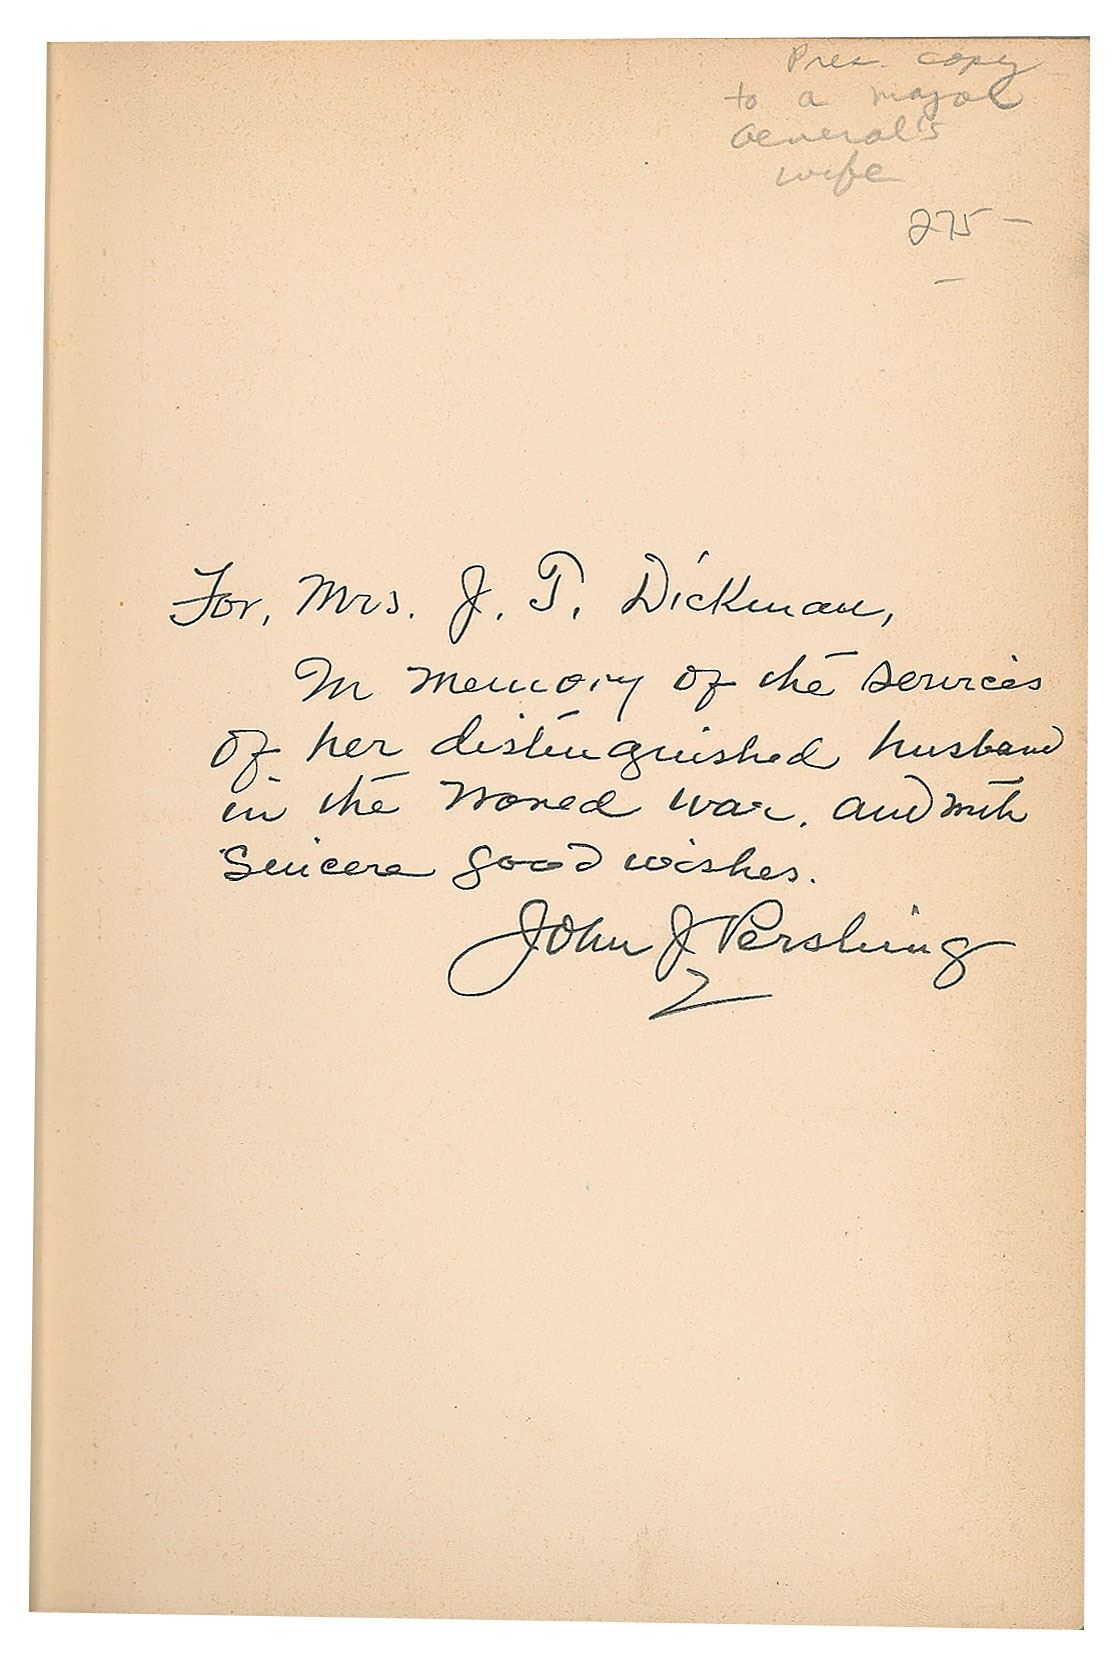 Pres. copy
to a major
General's
wife
275 —
For, Mrs. J. T. Dickman,
In memory of the services
of her distinguished husband
in the World War, and with
sincere good wishes.
John J Pershing